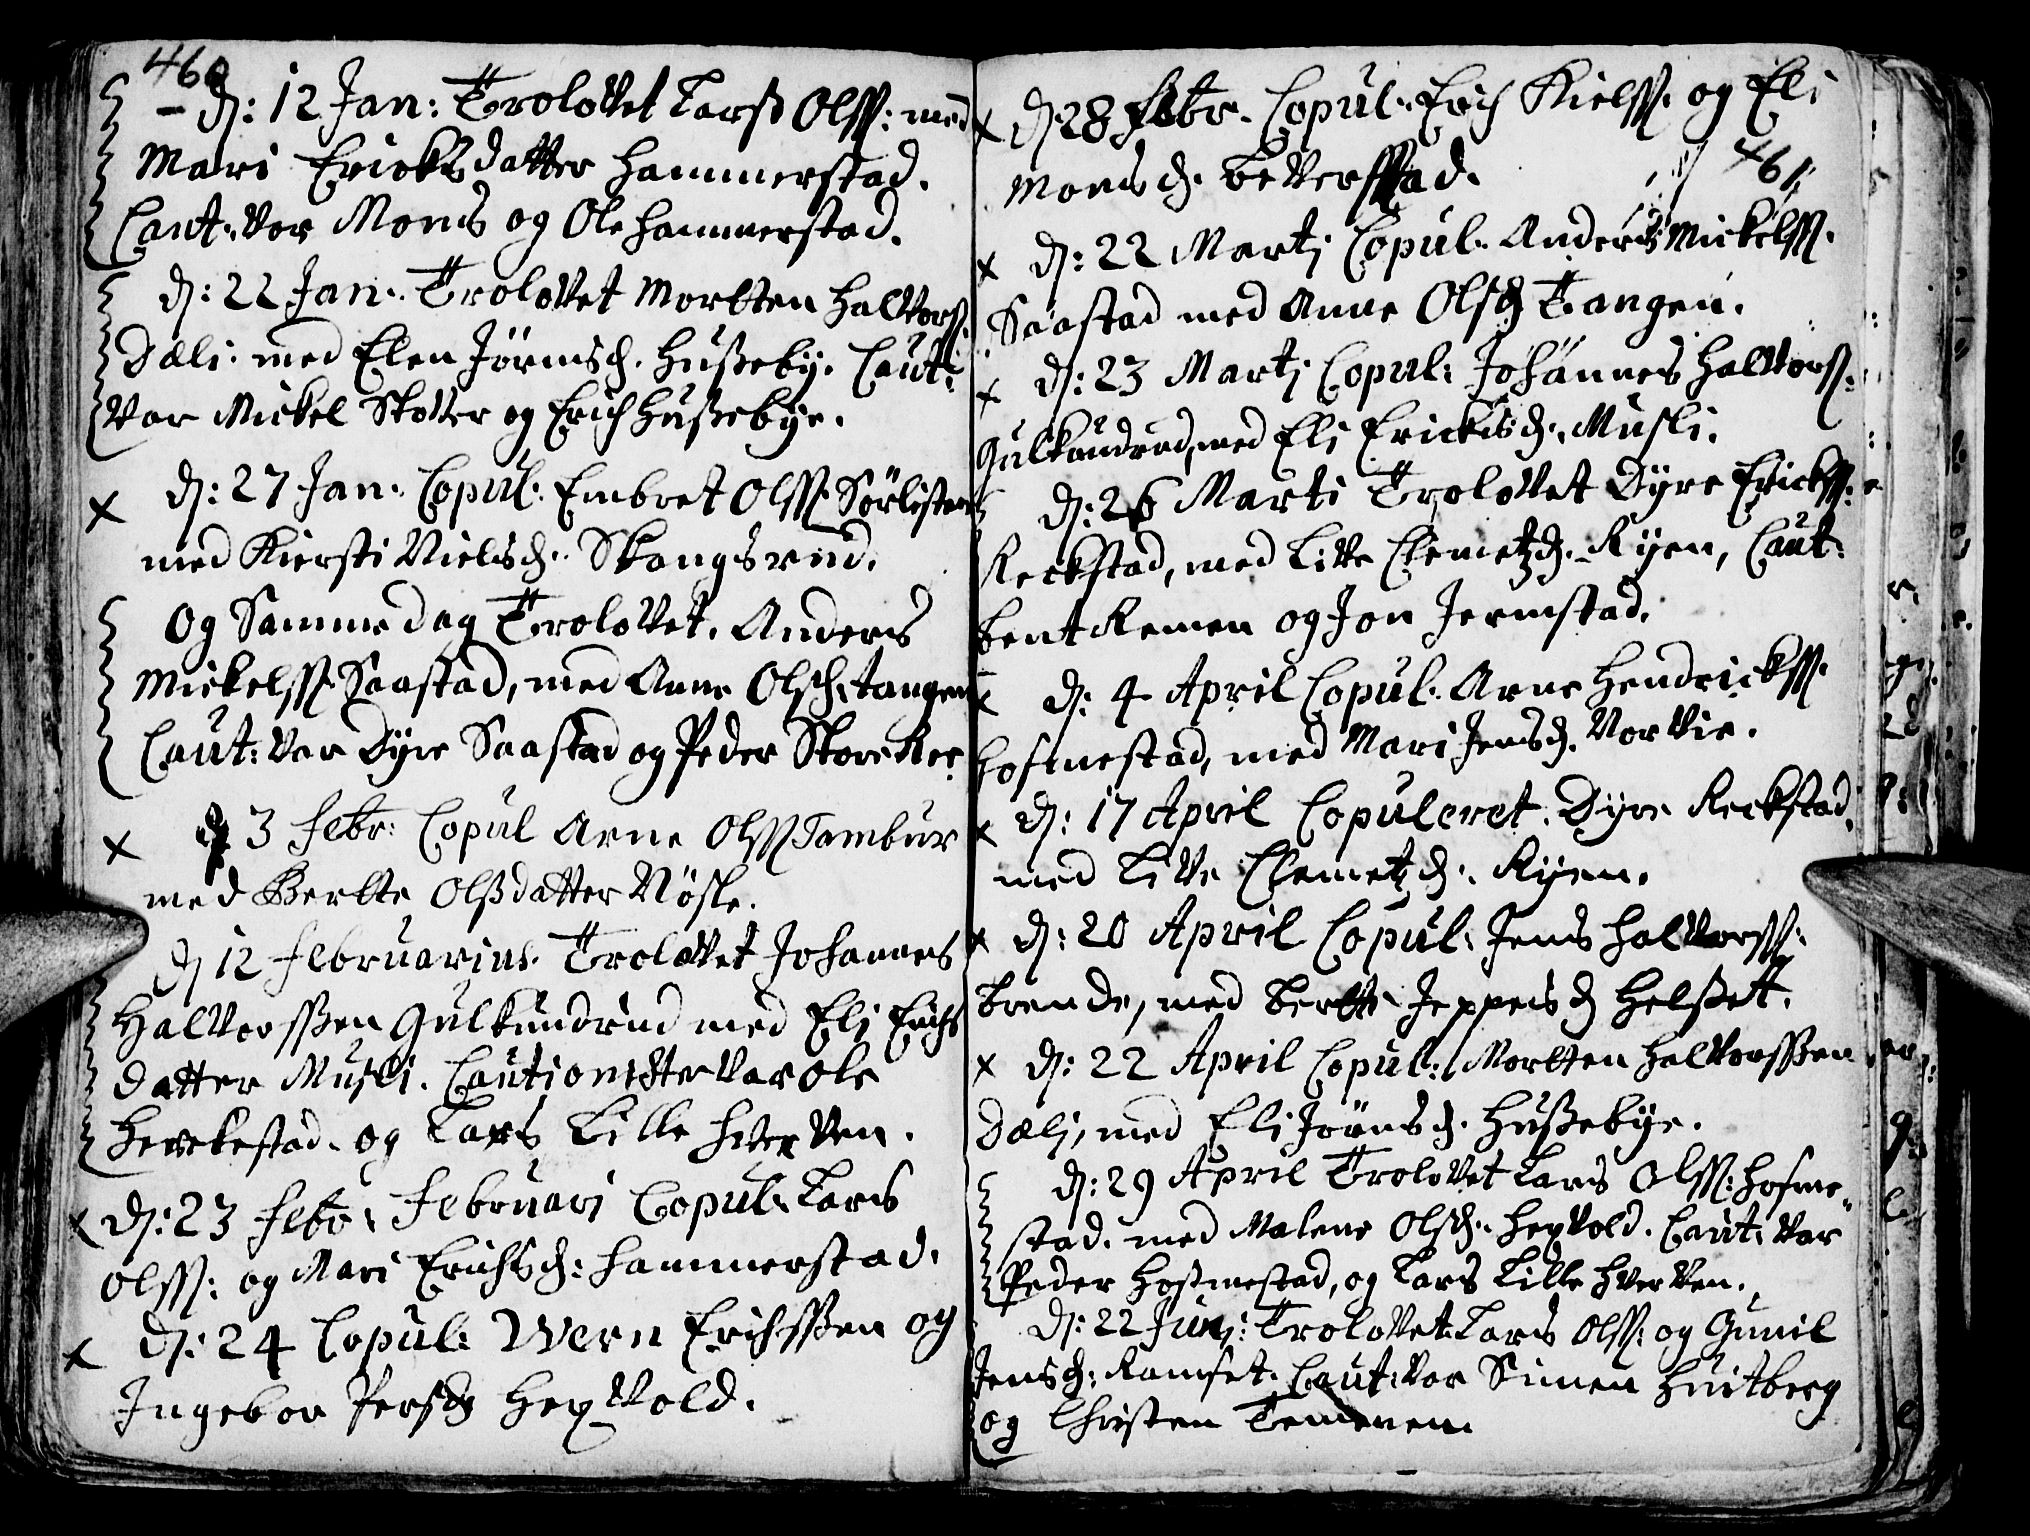 460
- d: 12 Jan: Trolovet Larss Olss: med
Mari Ericksdatter Hammerstad.
Caut: var Mons og Ole Hammerstad.
d: 22 Jan: Trolovet Mortten Halvorss.
Dæli. med Elen Jörnsd. Hussebÿ. Caut:
var Mickel Skotter og Erich Hussebÿe.
x d: 27 Jan. Copul. Embret Olss Sörlisteen
med Kiersti Nielsd. Skangsrud.
Og Samme dag Trolovet. Anders
Mickelss. Saastad, med Anne Olsd. tangen
Caut: var Dÿre Saastad og Peder Store Ree
x 3 Febr: Copul Arne Olss Tambur
med Bertte Olssdatter Nösle.
d 12 Februarius. Trolovet Johannes
Halvorssen Gulkundrud med Eli Erichs
datter Musli. Cautionister var Ole
Herckestad. og Lars Lille Hverven.
x d: 23 Febr: Februari Copul. Lars
Olss: og Mari Erichsd: Hammerstad.
x d: 24 Copul: Wern Erichssen og
Ingebor Persd Hexvold.
x d. 28 Febr. Copul. Erich Kielss. og Eli
461
Monsd. Beverstad.
x d: 22 Martj Copul. Anders Mickelss.
Saastad med Anne Olsd Tangen.
x d: 23 Martj Copul: Johannes Halvorss:
Gulkundrud, med Eli Ericksd. Musli.
d: 26 Marti Trolovet Dÿre Erickss:
Reckstad, med Live Clemetzd. Rÿen, Caut:
Bent Remen og Jon Jermstad.
x d: 4 April Copul. Arne Hendrickss.
Hofmestad, med Mari Jensd. Vorvie.
x d: 17 April Copuleret. Dÿre Reckstad,
med Live Clemetzd. Rÿen.
x d: 20 April Copul: Jens Halvorss.
Brende, med Bertte Jeppesd Helsset.
x d: 22 April Copul: Mortten Halvorssen
Dælj, med Eli Jörnsd. Hussebÿe.
d: 29 April Trolovet Lars Olss: Hofme-
stad. med Malene Olsd. Hexvold. Caut: var
Peder Hofmestad, og Lars Lille Hverven.
d: 22 Junj: Trolovet Lars Olss: og Gunil
Jensd: Ramset. Caut: var Simen Huitberg
og Christen